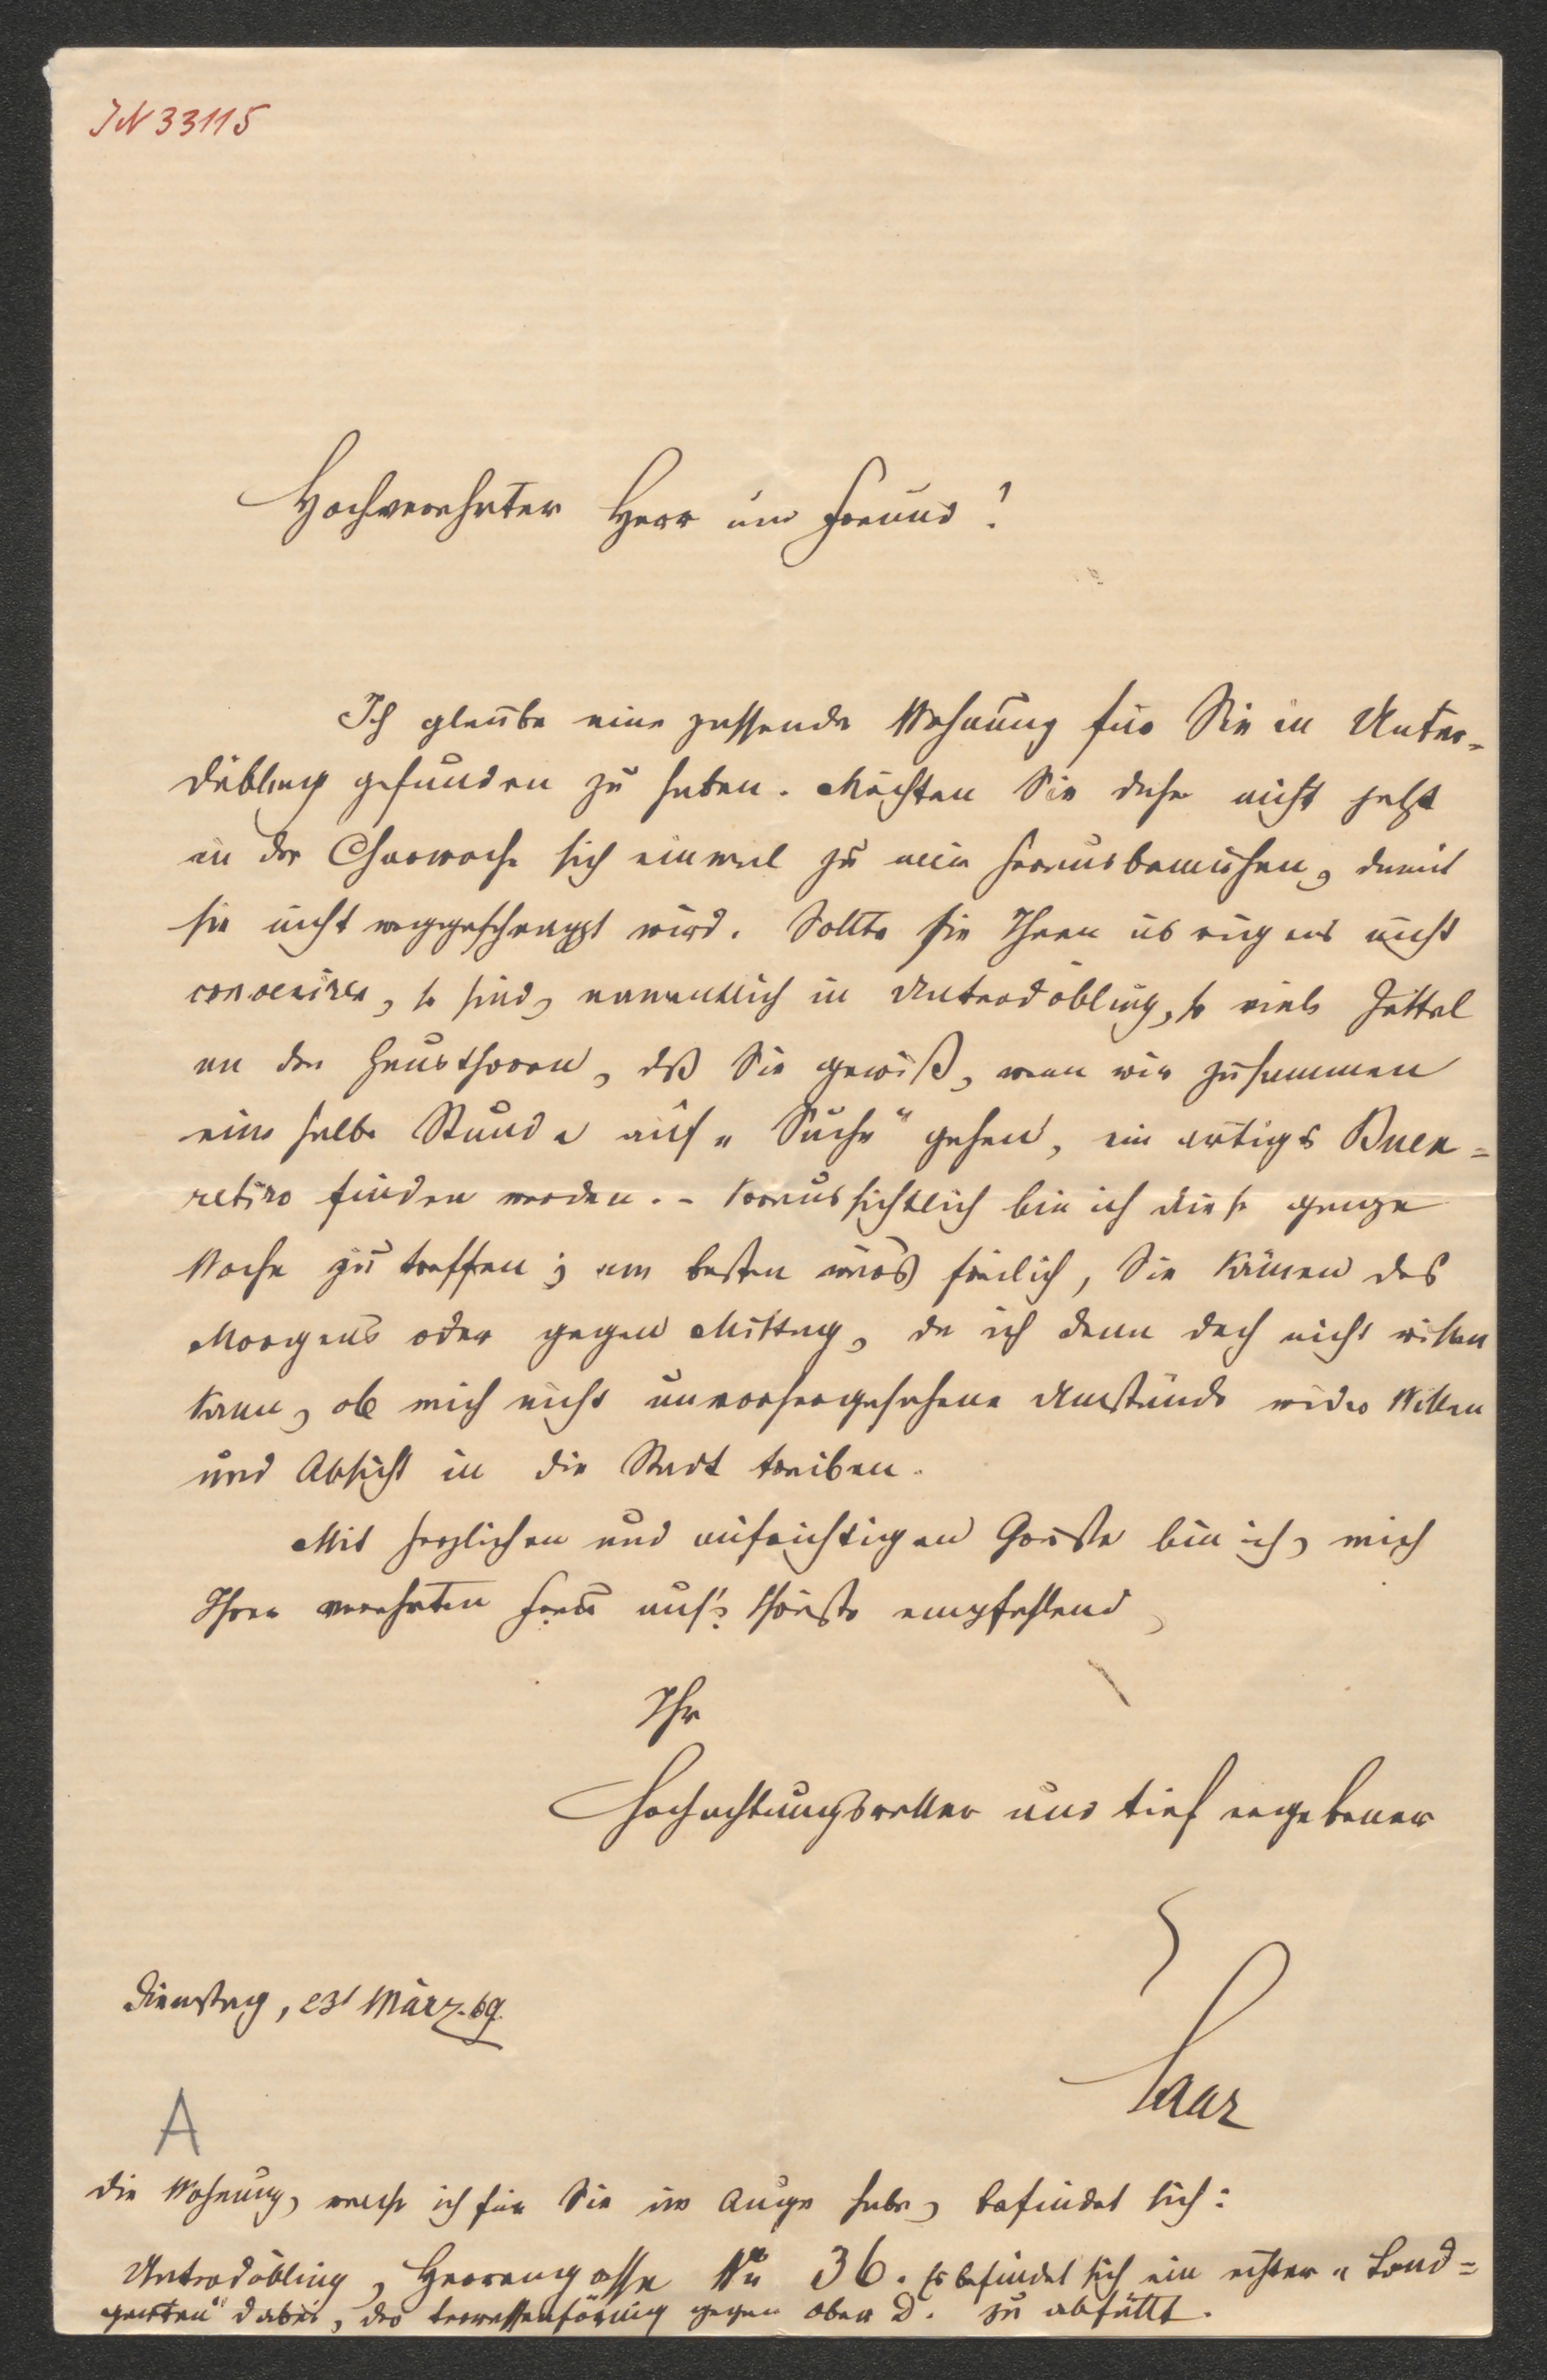 IN 33115
Hochverehrter Herr und Freund!
Ich glaube eine passende Wohnung für Sie in Unter-
döbling gefunden zu haben. Möchten Sie daher nicht jetzt
in der Charwoche sich einmal zu mir herausbemühen, damit
sie nicht weggeschnappt wird. Sollte sie Ihnen übrigens nicht
conveniren, so sind, namentlich in Unterdöbling, so viele Zettel
an den Hausthoren, daß Sie gewiß, wenn wir zusammen
eine halbe Stunde auf „Suche“ gehen, ein artiges Buen=
retiro finden werden. – Voraussichtlich bin ich diese ganze
Woche zu treffen; am besten wär's freilich, Sie kämen des
Morgens oder gegen Mittag, da ich denn doch nicht wissen
kann, ob mich nicht unvorhergesehene Umstände wider Willen
und Absicht in die Stadt treiben.
Mit herzlichen und aufrichtigen Grüße bin ich, mich
Ihrer verehrten Frau auf's empfehlend,
Ihr
Hochachtungsvoller und tief ergebener
Saar
Dienstag, 23t März. 69.
A
Die Wohnung, welche ich für Sie im Auge habe, befindet sich:
Unterdöbling, Herrengasse Nr 36. Es befindet sich ein echter „Land=
garten“ dabei, der terrassenförmig gegen Ober D. zu abfällt.